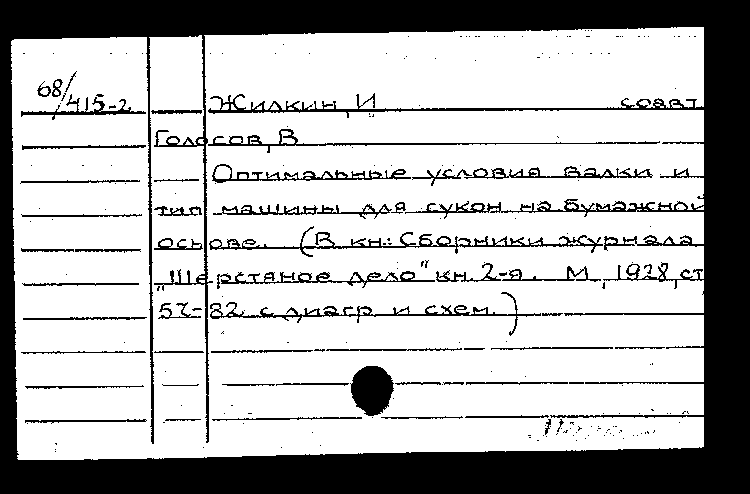 68/415-2
Жилкин, И соавт
Голосов, В
Оптимальные условия валки и
тип машины для сукон на бумажной
основе. (В кн: Сборники журнала
„Шерстяное дело" кн. 2-я. М, 1928, ст
57-82 с диагр и схем.)